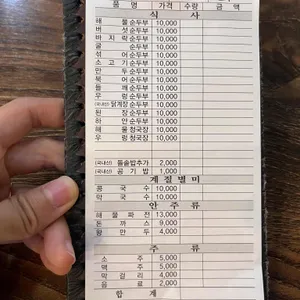 품 명 가격 수량 금 액
식 사
해 물 순두부 10,000
버 섯 순두부 10,000
바 지 락 순두부 10,000
굴 순두부 10,000
섞 어 순두부 10,000
소 고 기 순두부 10,000
만 두 순두부 10,000
북 어 순두부 10,000
들 깨 순두부 10,000
우 렁 순두부 10,000
(국내산) 닭개장 순두부 10,000
된 장 순두부 10,000
하 얀 순두부 10,000
해 물 청국장 10,000
우 렁 청국장 10,000
(국내산) 돌솥밥추가 2,000
(국내산) 공 기 밥 1,000
계 절 별 미
콩 국 수 10,000
막 국 수 10,000
안 주 류
해 물 파 전 13,000
돈 까 스 9,000
왕 만 두 4,000
주 류
소 주 5,000
맥 주 5,000
막 걸 리 4,000
음 료 2,000
합 계